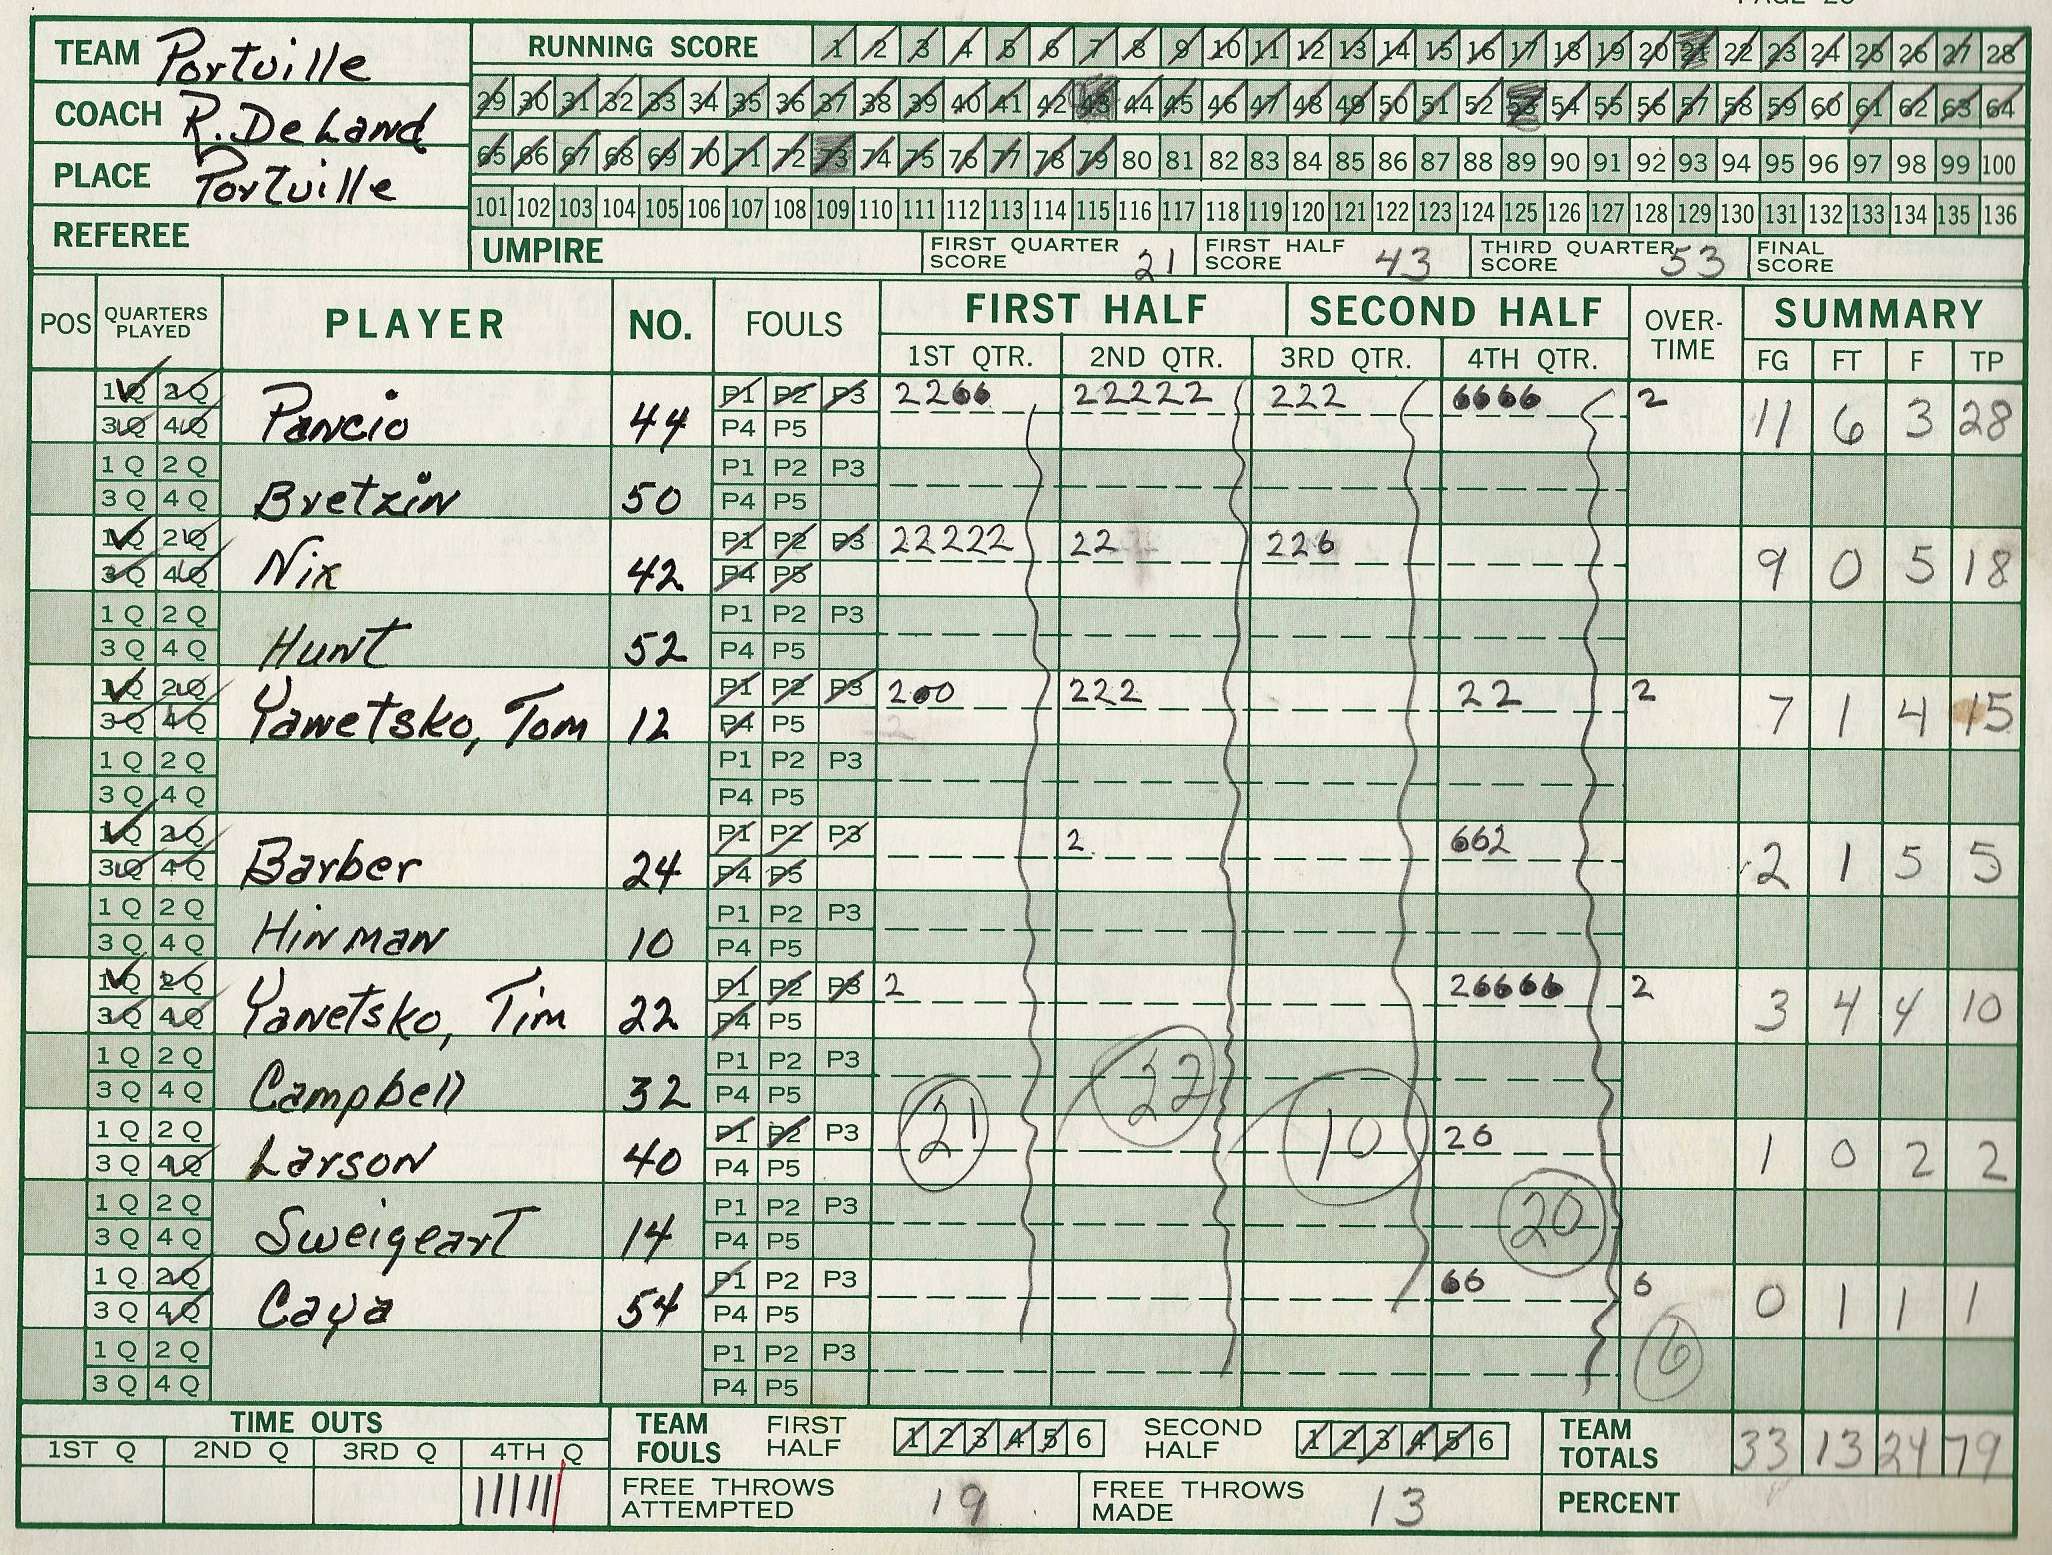 PAGE 26
TEAM Portville
COACH R. DeLand
PLACE Portville
REFEREE
RUNNING SCORE 1 2 3 4 5 6 7 8 9 10 11 12 13 14 15 16 17 18 19 20 21 22 23 24 25 26 27 28
29 30 31 32 33 34 35 36 37 38 39 40 41 42 43 44 45 46 47 48 49 50 51 52 53 54 55 56 57 58 59 60 61 62 63 64
65 66 67 68 69 70 71 72 73 74 75 76 77 78 79 80 81 82 83 84 85 86 87 88 89 90 91 92 93 94 95 96 97 98 99 100
101 102 103 104 105 106 107 108 109 110 111 112 113 114 115 116 117 118 119 120 121 122 123 124 125 126 127 128 129 130 131 132 133 134 135 136
UMPIRE FIRST QUARTER SCORE 21 FIRST HALF SCORE 43 THIRD QUARTER SCORE 53 FINAL SCORE
POS QUARTERS PLAYED PLAYER NO. FOULS FIRST HALF SECOND HALF OVER-TIME SUMMARY
1ST QTR. 2ND QTR. 3RD QTR. 4TH QTR. FG FT F TP
1Q 2Q P1 P2 P3 2266 22222 222 6666 2
3Q 4Q Pancio 44 P4 P5 11 6 3 28
1Q 2Q P1 P2 P3
3Q 4Q Bretzin 50 P4 P5
1Q 2Q P1 P2 P3 22222 22 226
3Q 4Q Nix 42 P4 P5 9 0 5 18
1Q 2Q P1 P2 P3
3Q 4Q Hunt 52 P4 P5
1Q 2Q P1 P2 P3 200 222 22 2
3Q 4Q Yawetsko, Tom 12 P4 P5 7 1 4 15
1Q 2Q P1 P2 P3
3Q 4Q P4 P5
1Q 2Q P1 P2 P3 2 662
3Q 4Q Barber 24 P4 P5 2 1 5 5
1Q 2Q P1 P2 P3
3Q 4Q Hinman 10 P4 P5
1Q 2Q P1 P2 P3 2 26666 2
3Q 4Q Yanetsko, Tim 22 P4 P5 3 4 4 10
1Q 2Q P1 P2 P3 22
3Q 4Q Campbell 32 P4 P5
1Q 2Q P1 P2 P3 21 10 26
3Q 4Q Larson 40 P4 P5 1 0 2 2
1Q 2Q P1 P2 P3 20
3Q 4Q Sweigeart 14 P4 P5
1Q 2Q P1 P2 P3 66 6
3Q 4Q Caya 54 P4 P5 0 1 1 1
1Q 2Q P1 P2 P3 6
3Q 4Q P4 P5
TIME OUTS TEAM FOULS FIRST HALF 1 2 3 4 5 6 SECOND HALF 1 2 3 4 5 6 TEAM TOTALS 33 13 24 79
1ST Q 2ND Q 3RD Q 4TH Q
FREE THROWS ATTEMPTED 19 FREE THROWS MADE 13 PERCENT